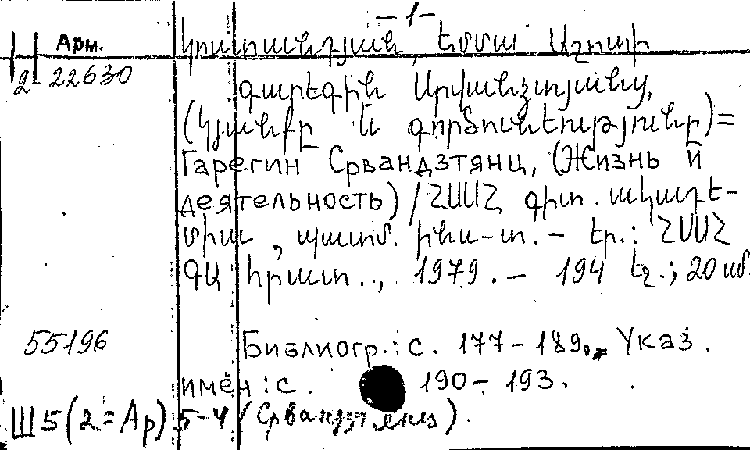 -1-
Арм.
2-22630
Կոստանդյան, Եմմա Աշոտի
Գարեգին Սրվանձտյանց,
(Կյանքը և գործունեությունը)=
Гарегин Срвандзтянц, (Жизнь и
деятельность)/ՀՍՍՀ գիտ. ակադե-
միա, պատմ. ինս-տ. – Եր.: ՀՍՍՀ
ԳԱ հրատ.., 1979. – 194 էջ.; 20 սմ.
55196
Библиогр.: с. 177-189., Указ.
имён: с. 190-193.
Ш5(2=Ар)5-4 (Срвандзтянц).